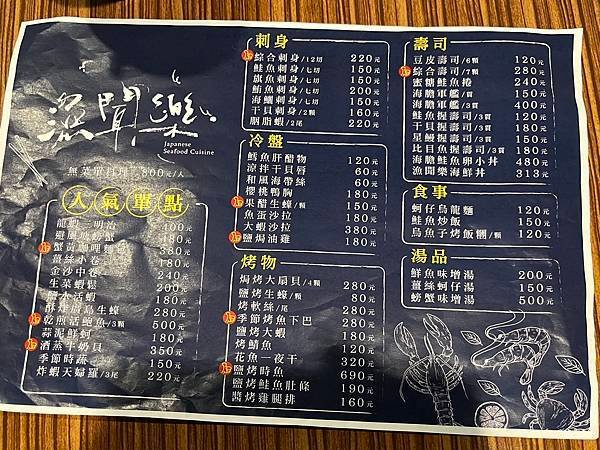 漁聞樂
Japanese
Seafood Cuisine
無菜單料理 800元/人
人氣單點
龍蝦三明治 400元
避風塘炒蟹 180元
380元
薑絲小卷 180元
金沙中卷 240元
生菜蝦鬆 200元
鹽水活蝦 180元
酥炸廣島生蠔 280元
乾煎活鮑魚/3顆 500元
蒜泥鮮蚵 180元
酒蒸牛奶貝 350元
季節時蔬 150元
炸蝦天婦羅/3尾 220元
刺身
綜合刺身/12切 220元
鮭魚刺身/七切 150元
旗魚刺身/七切 150元
鮪魚刺身/七切 200元
海鱺刺身/七切 150元
干貝刺身/2顆 160元
胭脂蝦/2尾 220元
冷盤
鱈魚肝醋物 120元
涼拌干貝唇 60元
和風海帶絲 60元
櫻桃鴨胸 180元
果醋生蠔/顆 150元
魚蛋沙拉 150元
大蝦沙拉 180元
鹽焗油雞 180元
烤物
焗烤大扇貝/4顆 280元
鹽烤生蠔/顆 80元
烤軟絲/尾 280元
季節烤魚下巴 280元
鹽烤大蝦 180元
烤鯖魚 120元
花魚一夜干 320元
鹽烤時魚 690元
鹽烤鮭魚肚條 190元
醬烤雞腿排 160元
壽司
豆皮壽司/6顆 120元
綜合壽司/7顆 280元
蜜糖鮭魚捲 240元
海膽軍艦/貫 150元
海膽軍艦/3貫 400元
鮭魚握壽司/3貫 120元
干貝握壽司/3貫 180元
星鰻握壽司/3貫 150元
比目魚握壽司/3貫 180元
海膽鮭魚卵小丼 480元
漁聞樂海鮮丼 313元
食事
蚵仔烏龍麵 120元
鮭魚炒飯 150元
烏魚子烤飯糰/顆 120元
湯品
鮮魚味增湯 200元
薑絲蚵仔湯 150元
螃蟹味增湯 500元